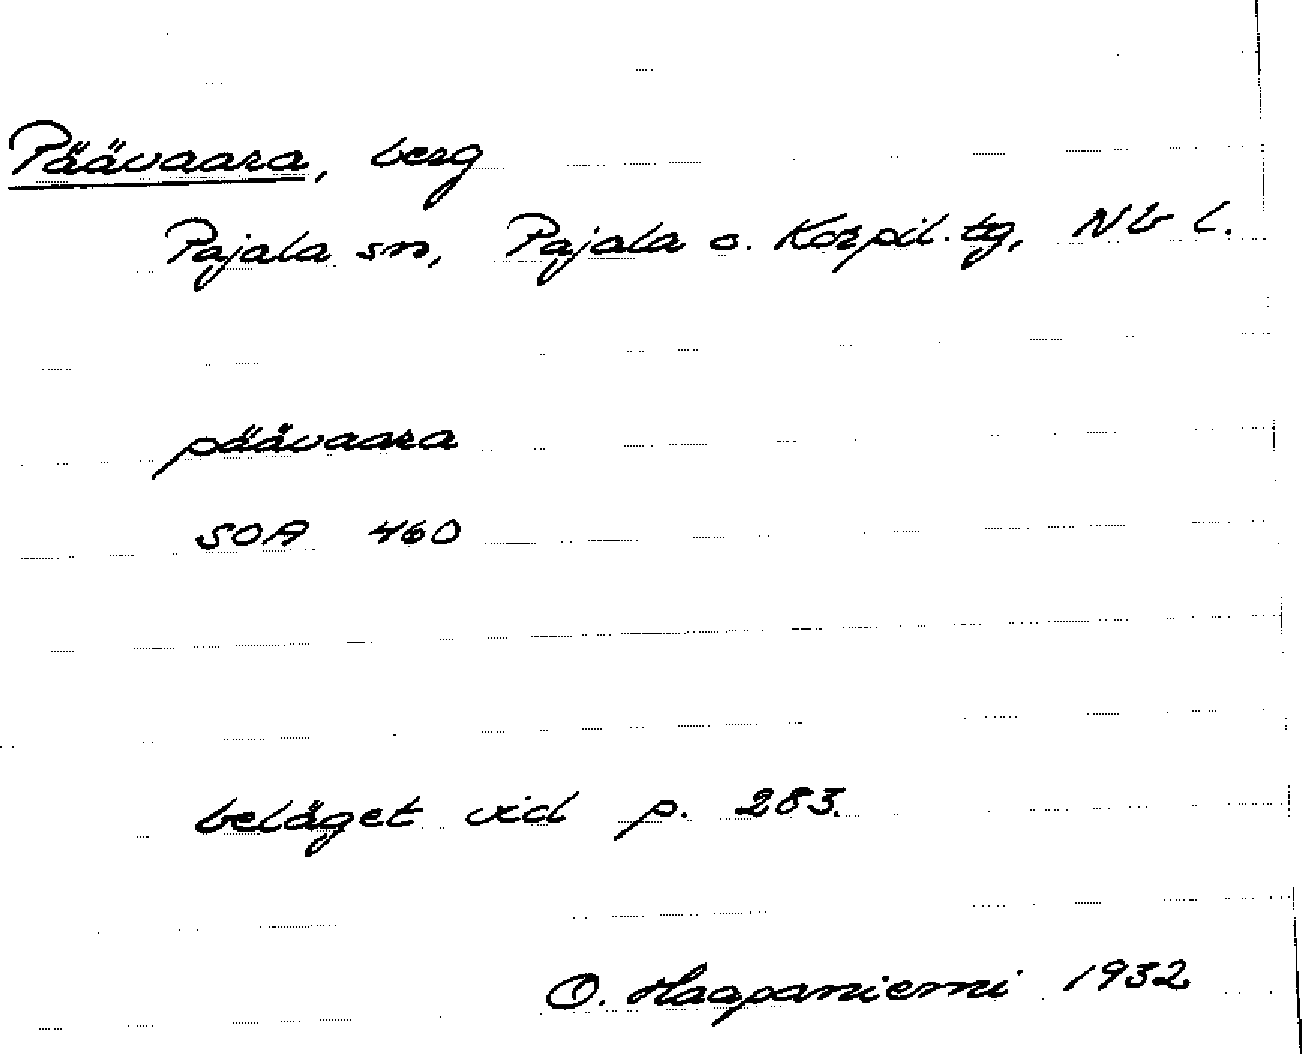 Päävaara, berg
Pajala sn, Pajala o. Korpil. tg, Nb l.
päävaara
SOA 460
beläget vid p. 283.
O. Haapaniemi 1932